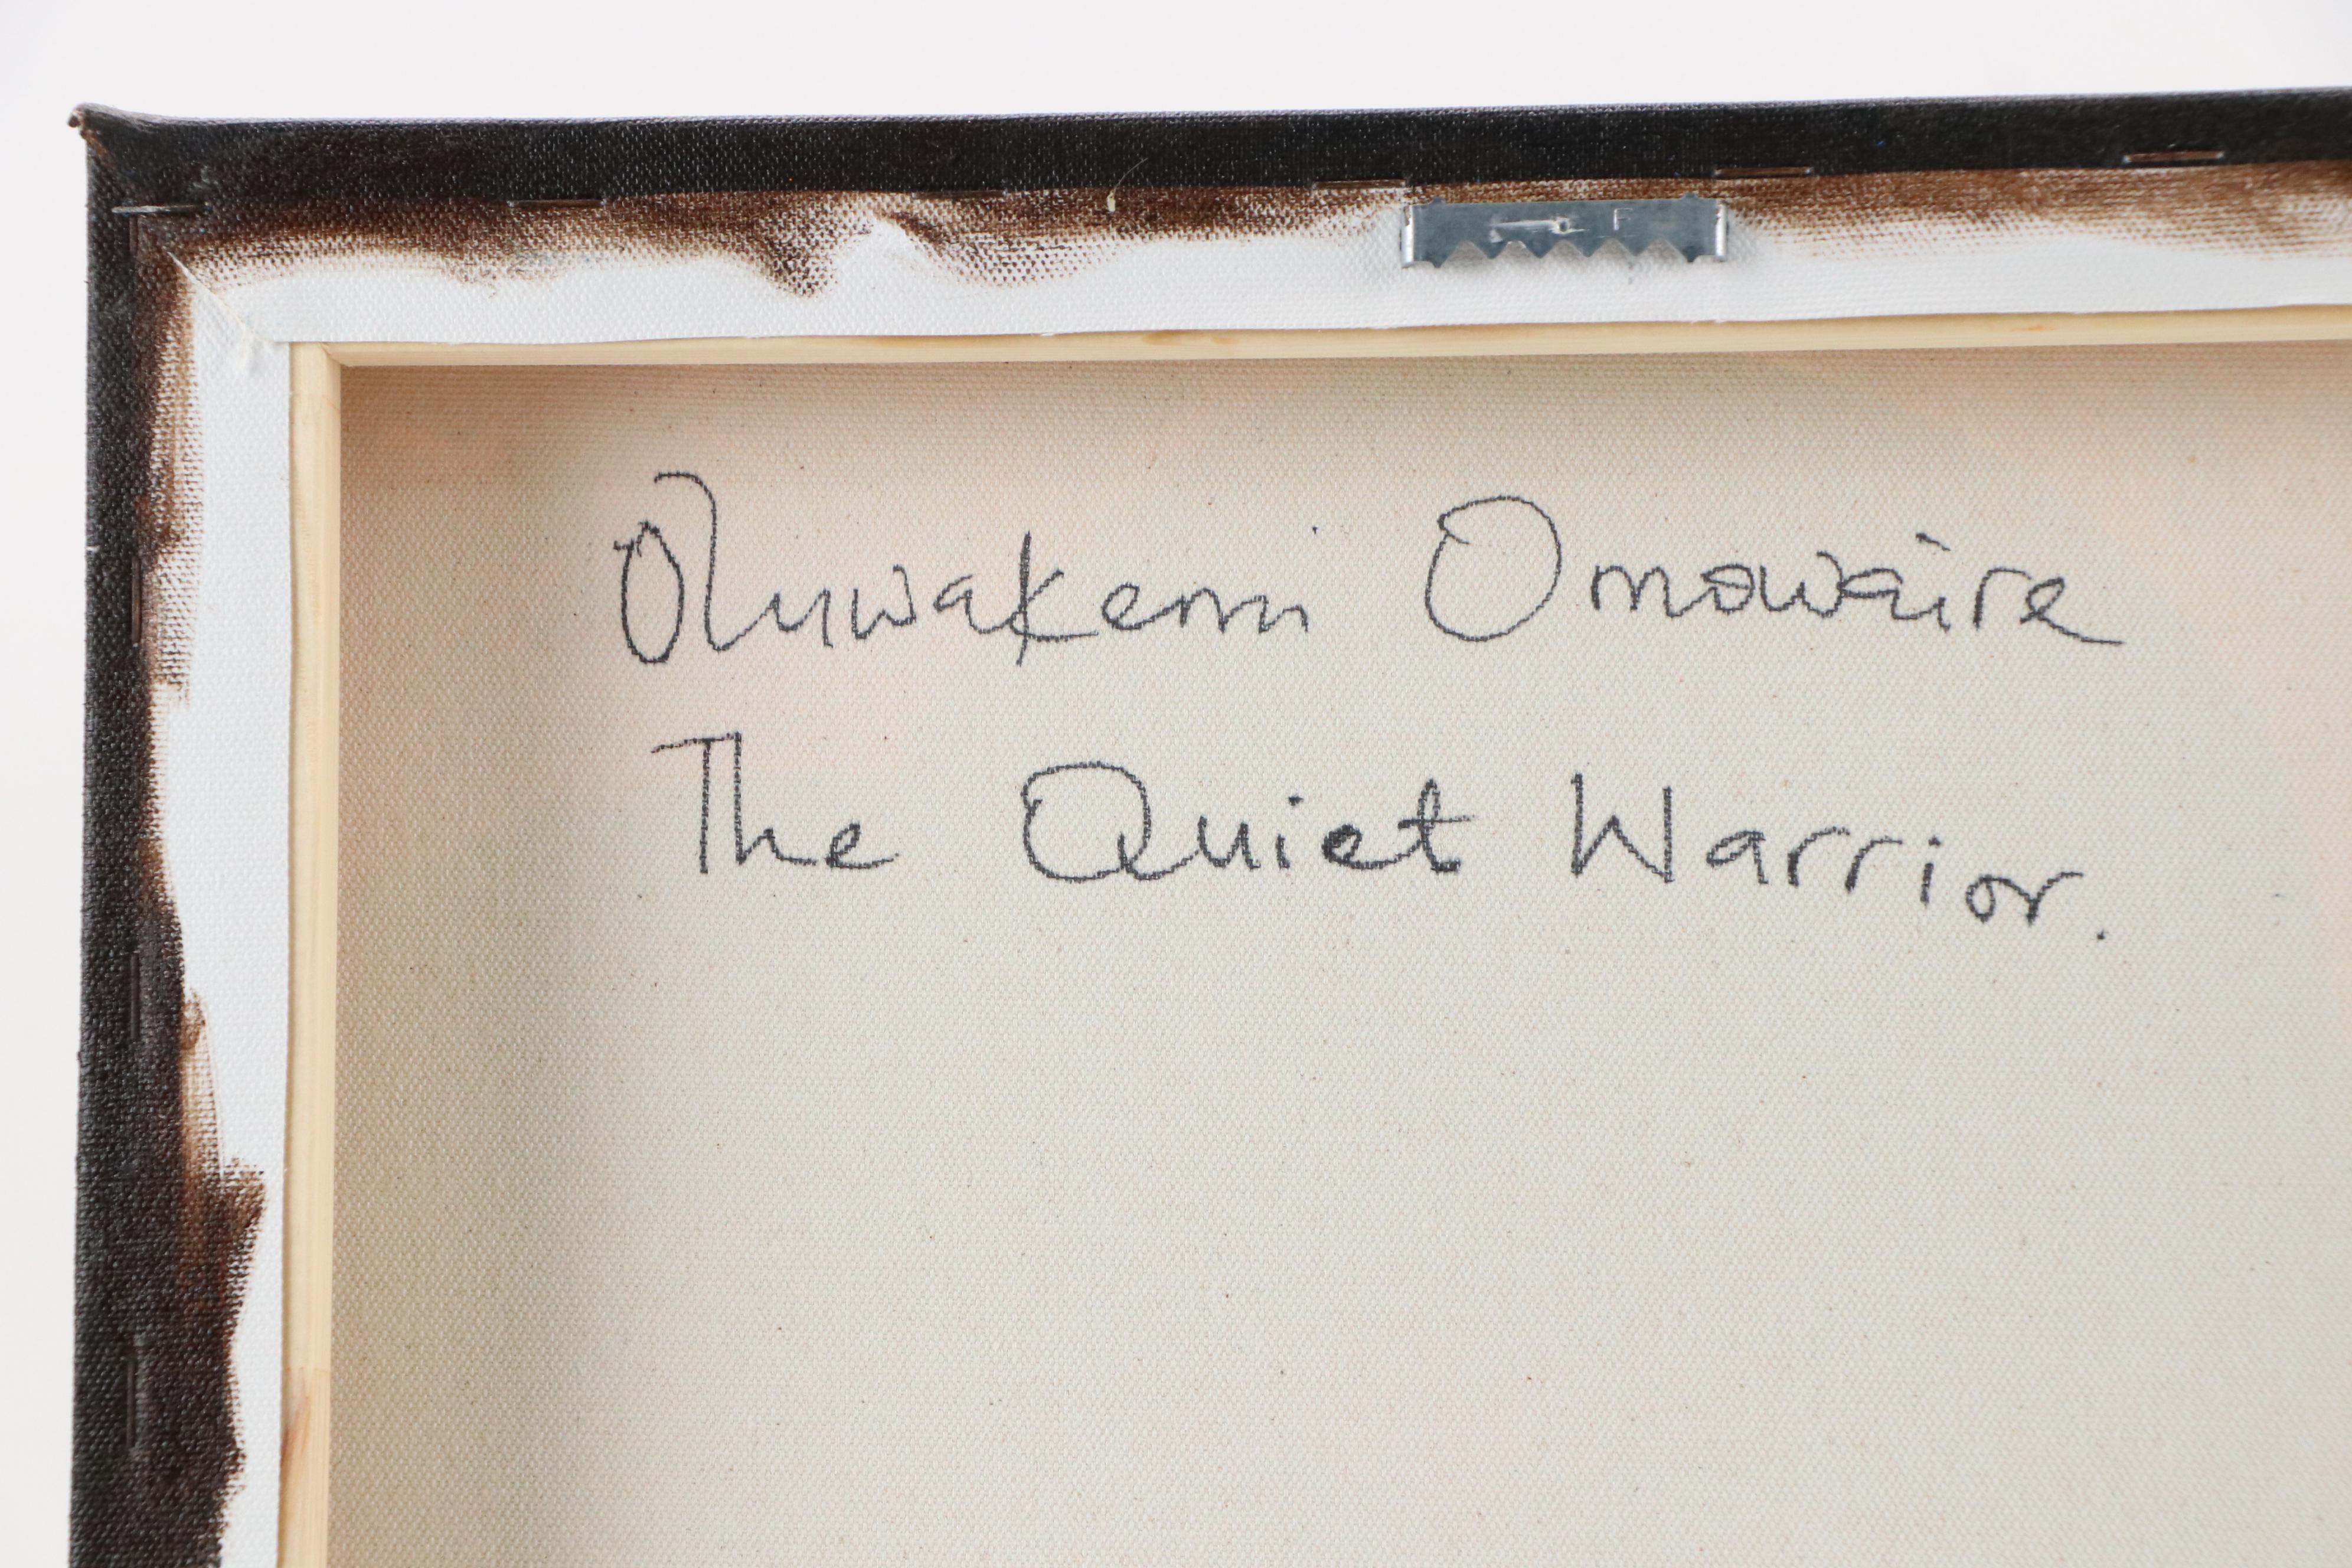 Oluwakemi Omowaire
The Quiet Warrior.